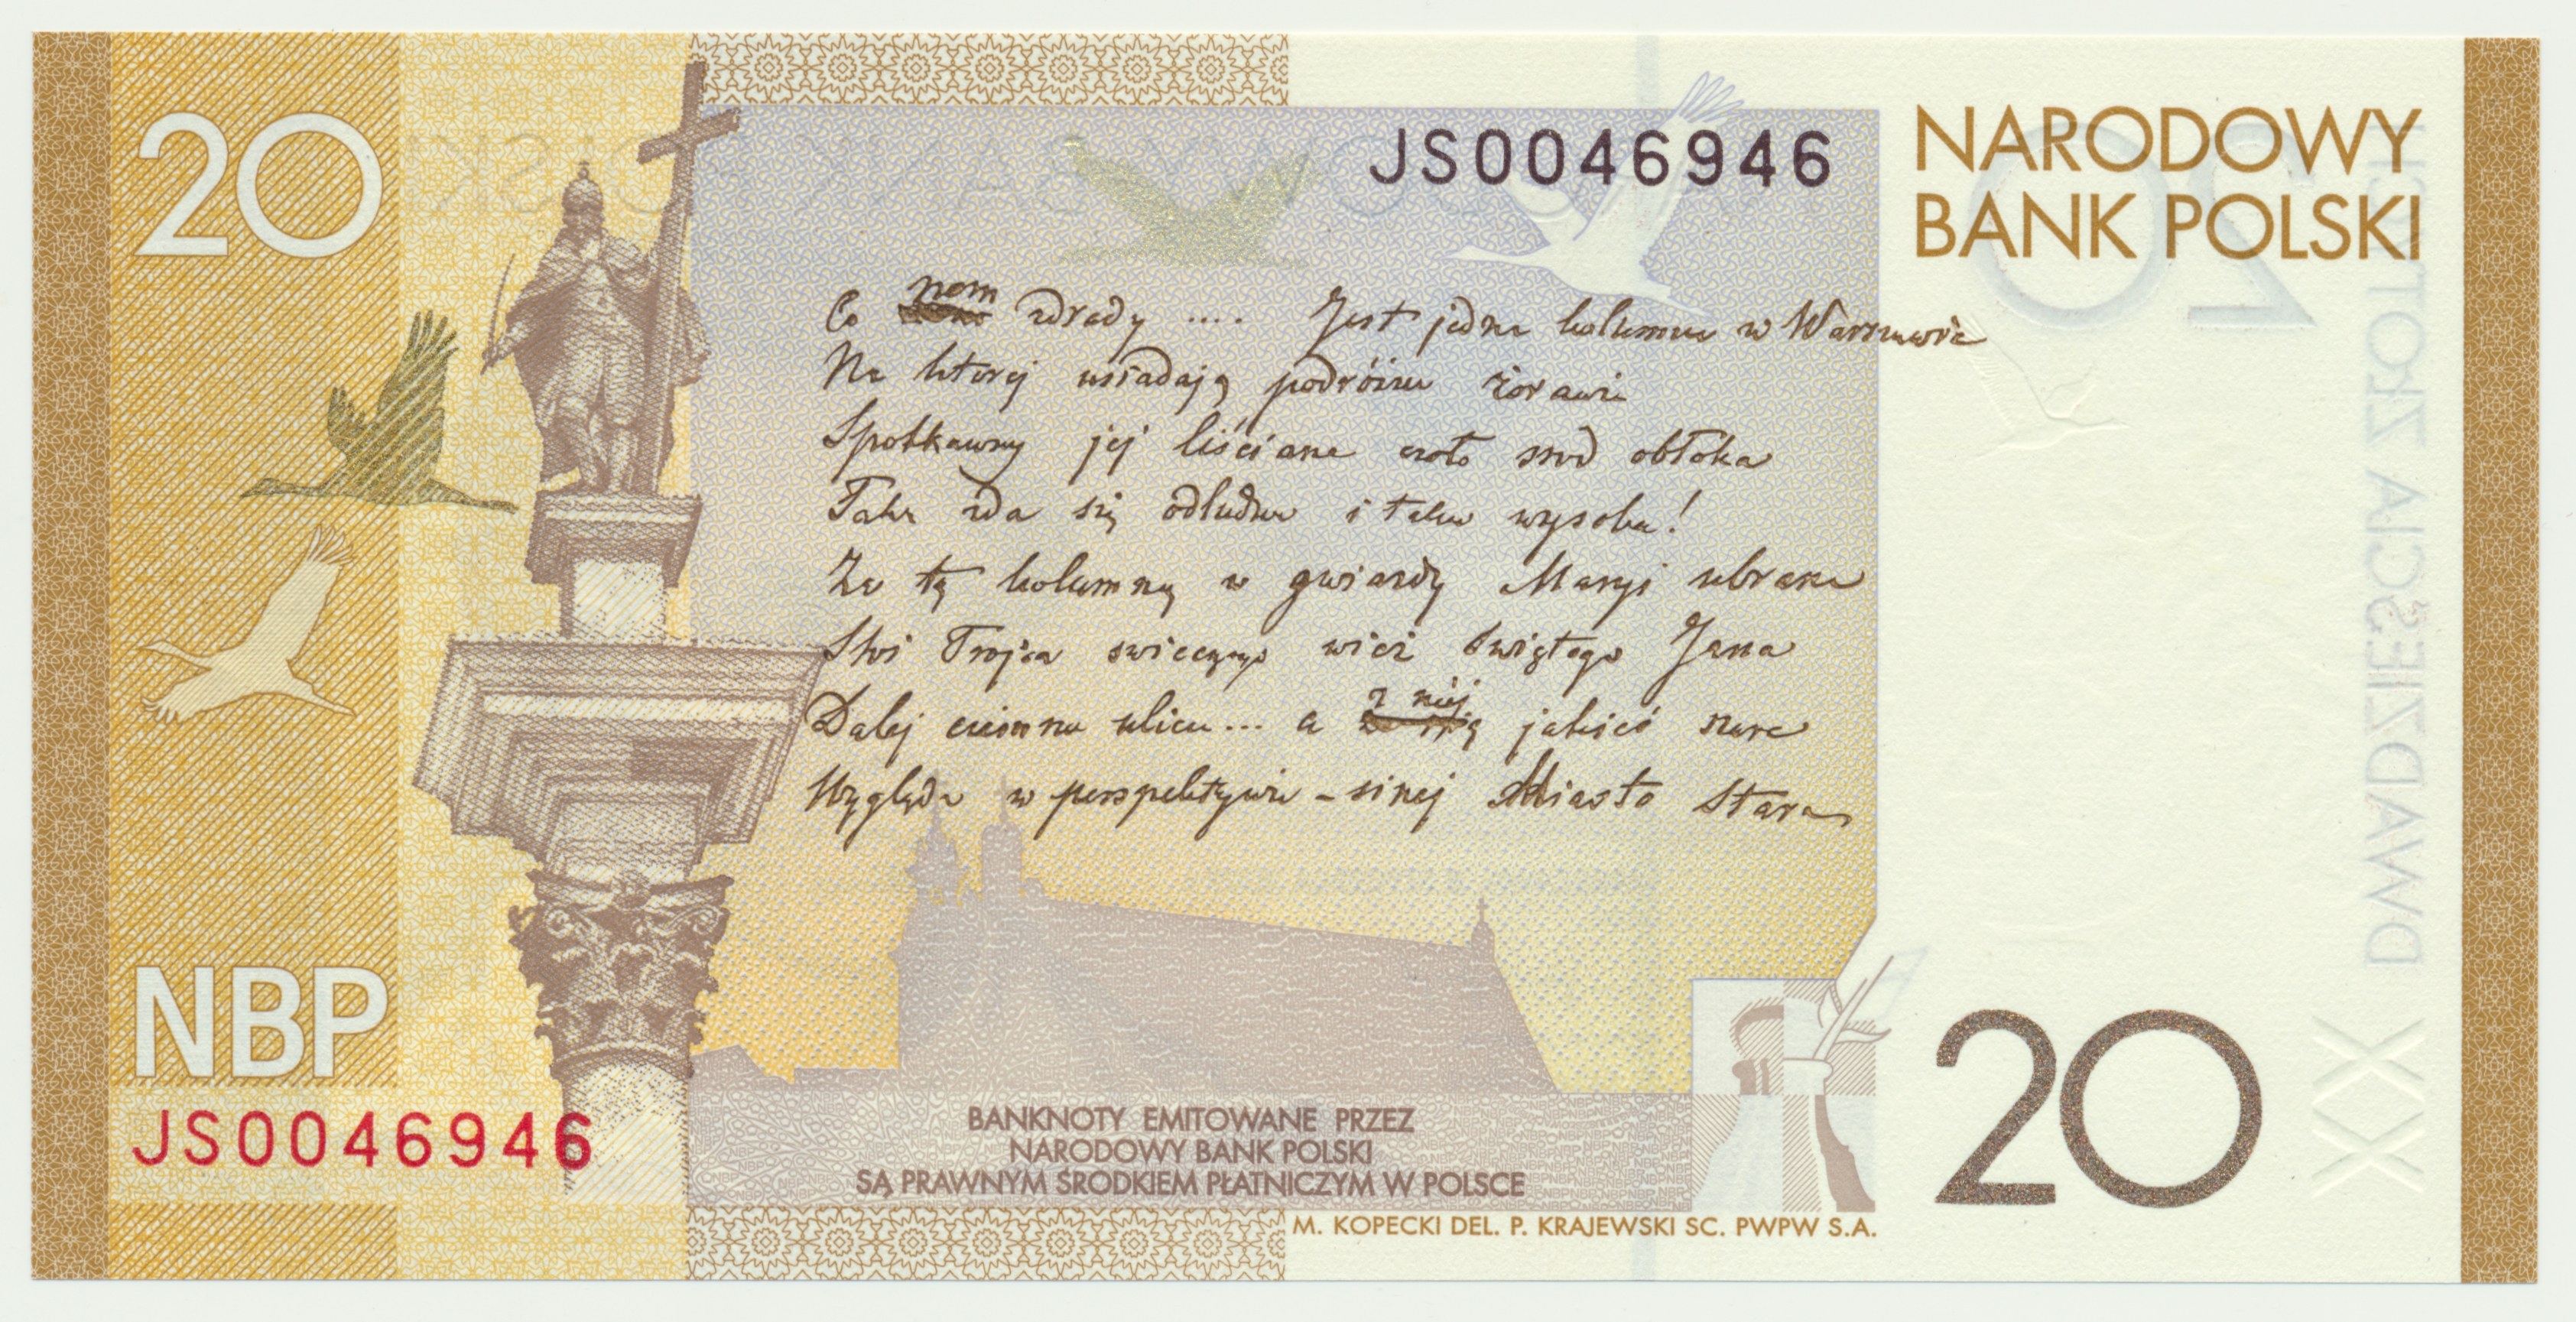 20
JS0046946
NARODOWY
BANK POLSKI
nam
Co zdrady .... Jest jedna kolumna w Warszawie
Na ktorej usiadają podróżne żorawie
Spotkawszy jej liściane czoło środ obłoka
Taka zda się odludna i taka wysoka!
Za tą kolumną w gwiazdy Maryi ubrana
Stoi Trojca świecącego wież świętego Jana
z niéj
Dalej ciemna ulica... a jakieś szare
Wygląda w perspektywie - sinej Miasto Stare
NBP
JS0046946
BANKNOTY EMITOWANE PRZEZ
NARODOWY BANK POLSKI
SĄ PRAWNYM ŚRODKIEM PŁATNICZYM W POLSCE
M. KOPECKI DEL. P. KRAJEWSKI SC. PWPW S.A.
20
XX
DWADZIEŚCIA ZŁOTYCH
20